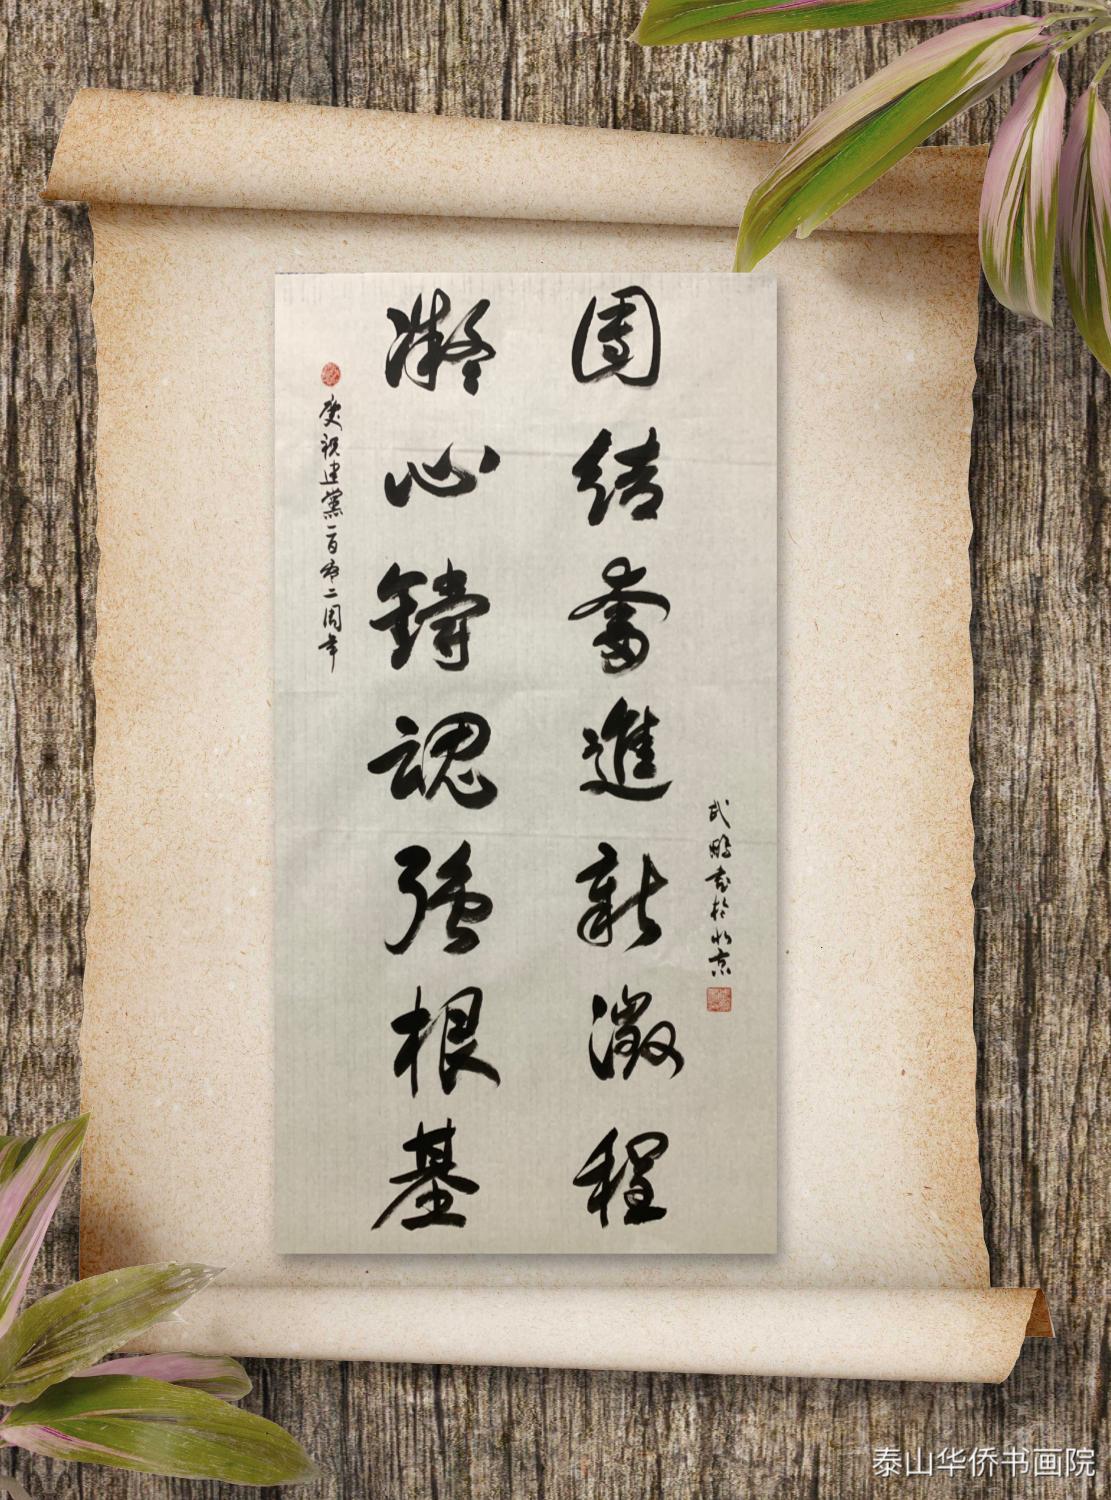 團結奮進新徵程
凝心鑄魂強根基
慶祝建黨一百有二周年
武鵬書於北京
泰山华侨书画院